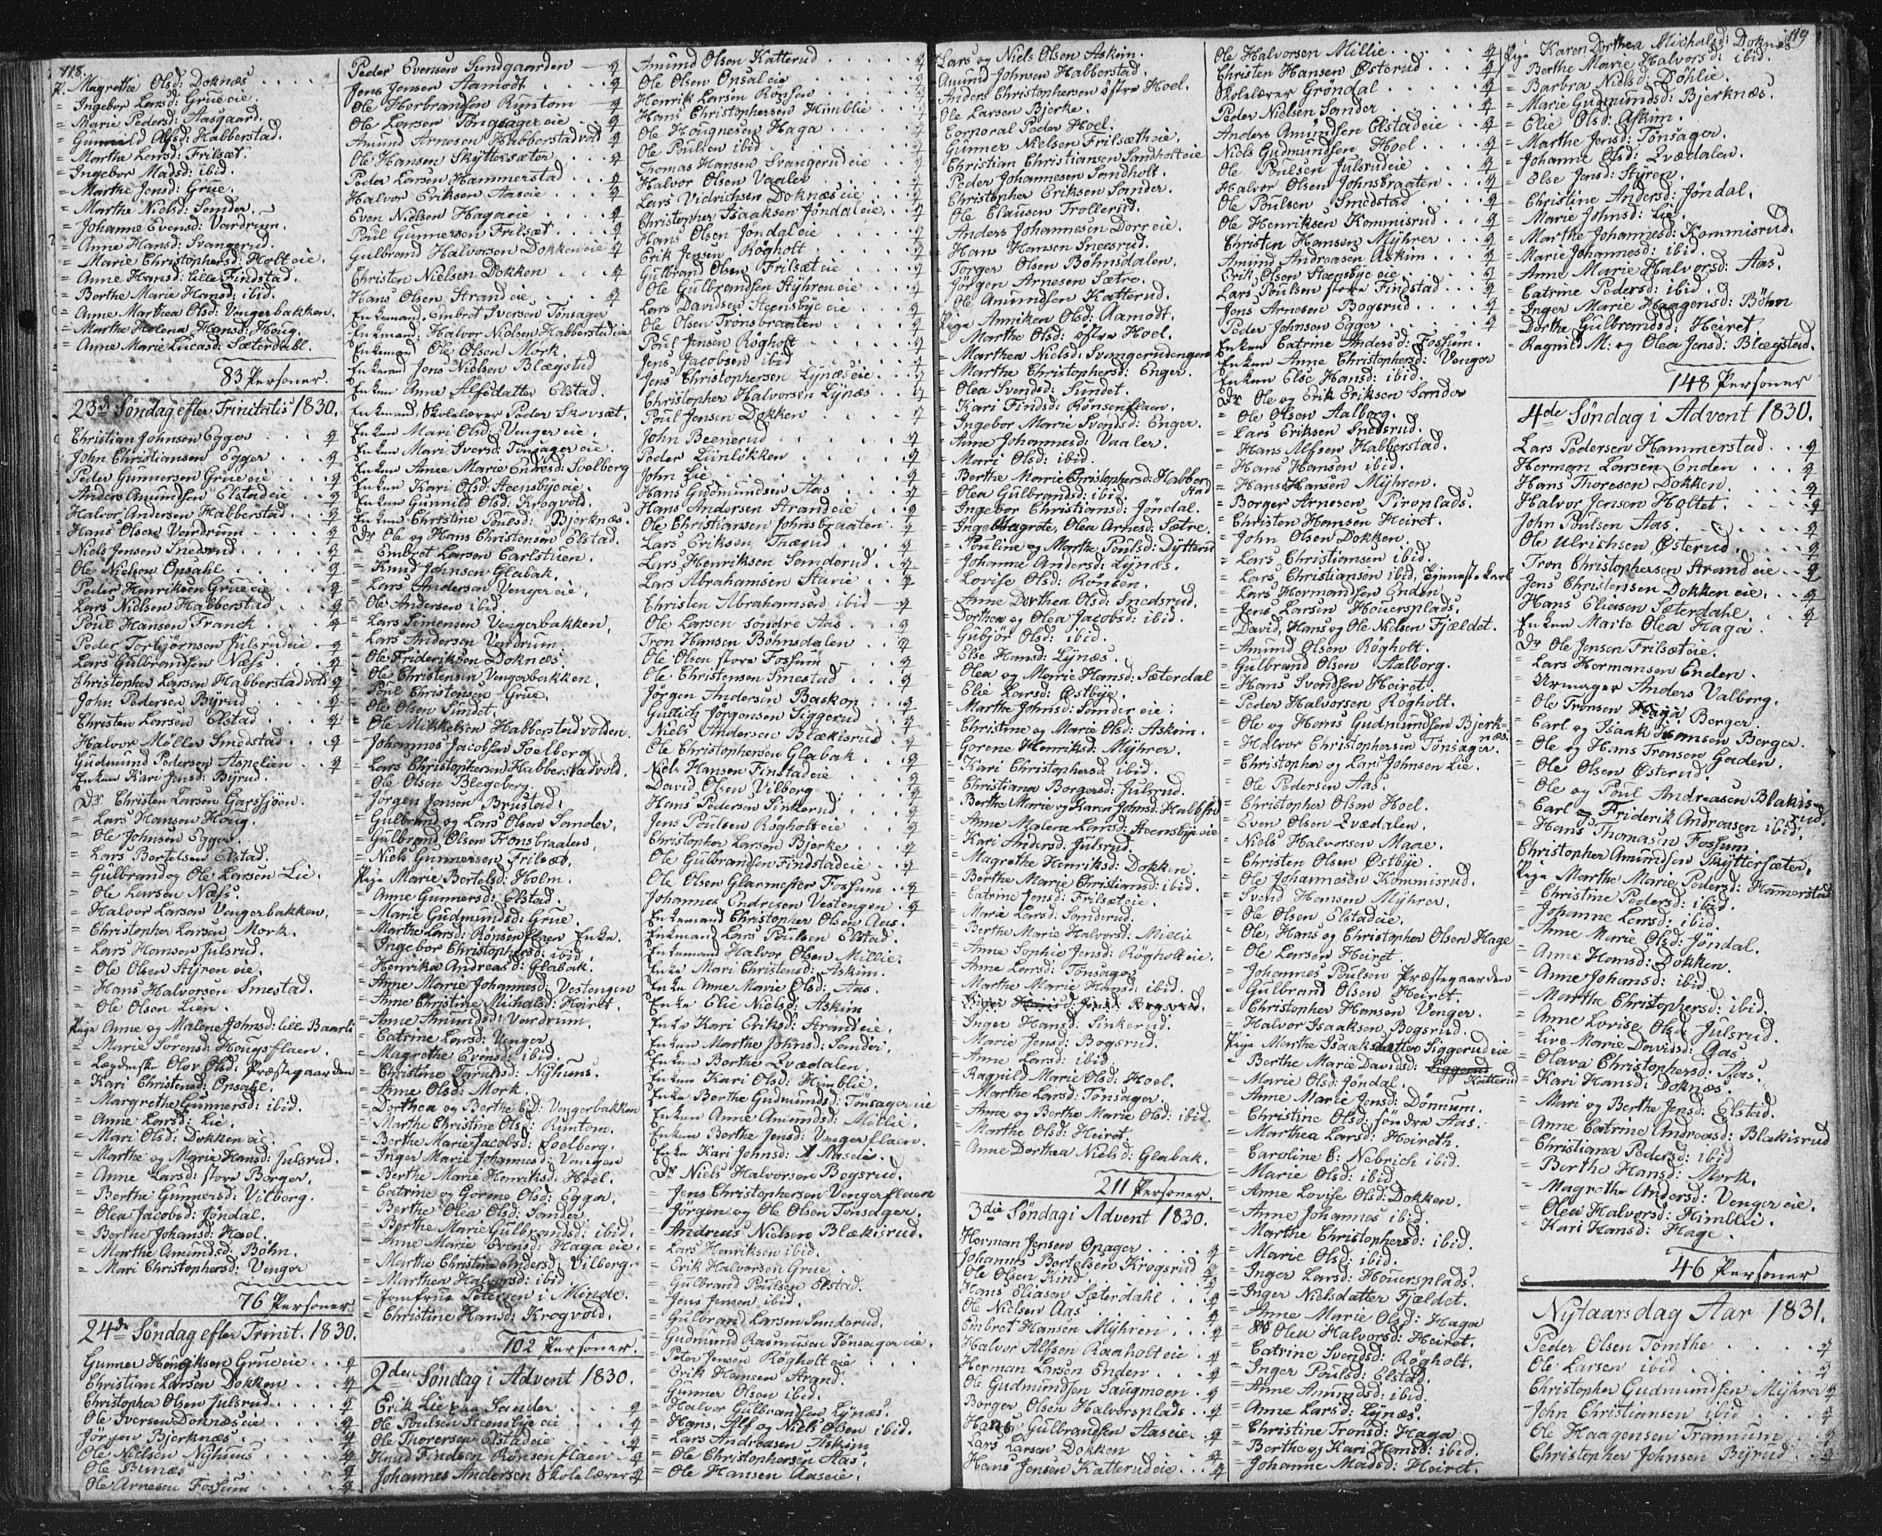 118.
P. Magrethe Olsd: Doknæs
= Ingebor Larsd: Grueeie.
= Marie Pedersd: Aasgaard.
= Gunnild Alfsd: Habberstad.
= Marthe Larsd: Frilsæt.
= Ingebor Madsd: ibid.
= Marthe Jensd: Grue.
= Marthe Nielsd: Sander.
= Johanne Evensd: Vardrum.
= Anne Hansd: Svangerud.
= Marie Christophersd: Holteie.
= Anne Hansd: lille Findstad.
= Berthe Marie Hansd: ibid.
= Anne Marthea Olsd: Vengerbakken.
= Marthe Helena Hansd: Houg.
= Anne Marie Lucasd: Sæterdahl.
83 Personer.
23de Søndag efter Trinitatis 1830.
Christian Johnsen Egger
John Christiansen Egger
Peder Gunnersen Grueeie
Anders Amundsen Elstadeie
Halvor Andersen Habberstad
Hans Olsen Vardrum
Niels Jensen Snedsrud
Ole Nielsen Opsahl
Peder Henriksen Grueeie
Lars Nielsen Habberstad
Poul Hansen Franck
Peder Torbjørnsen Julsrudeie
Lars Gulbrandsen Næss
Christopher Larsen Habberstadvold
John Pedersen Byrud
Christen Larsen Elstad
Halvor Møller Smedstad
Gudmund Pedersen Aspelien
Enken Kari Jensd: Byrud.
Dr Christen Larsen Garssjøen.
= Lars Hansen Houg.
= Ole Johnsen Egger.
= Lars Bertelsen Elstad.
= Gulbrand og Ole Larsen Lie.
= Ole Larsen Næss.
= Halvor Larsen Vengerbakken.
= Christopher Larsen Mork.
= Lars Hansen Julsrud.
= Ole Olsen Styreneie.
= Hans Halvorsen Smestad.
= Ole Olsen Lien.
Pige Anne og Malene Johnsd: lille Baarli
= Marie Sørensd: Hougsflaen.
= Kari Christensd: Opsahl.
= Margrethe Gunnersd: ibid.
= Anne Larsd: Lie.
= Mari Olsd: Dokkeneie.
= Marthe og Marie Hansd: Julsrud.
= Anne Larsd: store Berger.
= Berthe Gunnersd: Vilberg.
= Olea Jacobsd: Jøndal.
= Berthe Johansd: Hoel.
= Marthe Amundsd: Bøhn.
= Mari Christophersd: Venger
76 Personer
24de Søndag efter Trinit. 1830.
Gunner Henriksen Grueeie
Christian Larsen Dokken
Christopher Olsen Julsrud
Ole Iversen Doknæseie
Jørgen Bjerknæs
Ole Nielsen Nyhuus
Ole Bunæs
Ole Arnesen Fossum
Peder Evensen Sundgaarden
Jens Jensen Aamodt
Ole Thorbrandsen Runstom
Ole Larsen Tønsagereie
Amund Arnesen Habberstadvold
Ole Hansen Skyttersæter
Peder Larsen Hammerstad
Halvor Eriksen Aaseie
Even Nielsen Hagaeie
Poul Gunnersen Frilsæt
Gulbrand Halvorsen Dokkeneie
Christen Nielsen Dokken
Hans Olsen Strandeie
Enkemand Embret Iversen Tønsager
Enkemand Halvor Nielsen Habberstadeie
Enkemand Ole Olsen Mork.
Enkemand Jens Nielsen Blægstad
Enken Anne Alfsdatter Elstad.
Enkemand Skolelærer Peder Skovsæt.
Enken Mari Olsd: Vengereie.
Enken Mari Iversd: Tønsagereie.
Enken Anne Marie Endresd: Soelberg
Enken Kari Olsd: Steensbyeeie.
Enken Gunnild Olsd: Krogvold.
Enken Christine Poulsd: Bjerknæs.
Dr Ole og Hans Christensen Elstad.
= Embret Larsen Carlstuen.
= Knud Johnsen Glabak.
= Lars Andersen Vengereie.
= Ole Andersen ibid.
= Lars Simensen Vengerbakken.
= Lars Andersen Vardrum.
= Ole Frideriksen Doknæs.
= Ole Christensen Vengerbakken.
= Poul Christensen Grue.
= Ole Olsen Sundet.
= Ole Mikkelsen Habberstadvolden.
= Johannes Jacobsen Soelberg.
= Lars Christophersen Habberstadvold.
= Ole Olsen Blegeberg.
= Jørgen Jensen Brustad.
= Gulbrand og Lars Olsen Sander.
= Gulbrand Olsen Tronsbraaten.
= Niels Gunnersen Frilsæt.
Pige Marie Bertelsd: Holm.
= Anne Gunnersd: Elstad.
= Marie Gudmundsd: Grue.
= Marthe Larsd: Rønsenflaen Enke.
= Ingebor Christophersd: ibid.
= Henrika Andreasd: Glabak.
= Anne Marie Johannesd: Vestengen
= Anne Christine Michalsd: Heiret.
= Anne Amundsd: Vardrum.
= Catrine Larsd: Venger
= Magrethe Evensd: ibid.
= Anne Olsd: Mork
= Dorthea og Berthe Ed: Vengerbakken
= Marthe Christine Olsd: Runtom.
= Berthe Marie Jacobsd: Soelberg.
= Inger Marie Johannesd: Vengen
= Berthe Marie Henriksd: Hoel.
= Catrine og Gorine Olsd: Egger.
= Berthe Olea Olsd: Sander
= Berthe Marie Gulbrandsd: ibid.
= Anne Marie Evensd: Hagaeie.
= Marthe Christine Andersd: Vilberg.
= Marthea Halvorsd: ibid.
= Jomfrue Petersen i Minde.
= Christine Hansd: Krogvold.
102 Personer.
2den Søndag i Advent 1830.
Ole Poulsen Steensbyeeie
Ole Thoresen Elstadeie
Knud Findsen Rønsenflaen
Johannes Andersen Skolelærer
Amund Olsen Katterud
Ole Olsen Opsaleie
Henrik Larsen Rønsen
Hans Christophersen Himblie
Ole Haagnesen Haga
Ole Poulsen ibid
Thomas Hansen Svangerudeie
Halvor Olsen Vaaler
Lars Vidrichsen Doknæseie
Christopher Isaaksen Jøndaleie
Hans Olsen Jøndaleie
Erik Jensen Røgholt
Gulbrand Olsen Frilsæteie
Ole Gulbrandsen Styhreneie
Lars Davidsen Steensbyeeie
Ole Olsen Tronsbraaten
Poul Jensen Røgholt
Jens Jacobsen ibid
Jens Christophersen Lynæseie
Christopher Halvorsen Lynæs
Poul Jensen Dokken
John Beenerud
Peder Liinløkken
John Lie
Hans Gudmundsen Aas
Hans Andersen Strandeie
Ole Christiansen Johnsbraaten
Lars Eriksen Thærud
Lars Henriksen Sanderud
Lars Abrahamsen Starie
Christen Abrahamsen ibid
Ole Larsen søndre Aas
Tron Hansen Bøhnsdalen
Ole Olsen store Fossum
Ole Christensen Smestad
Jørgen Andersen Baskon
Gullik Jørgensen Siggerud
Niels Andersen Blækisrud
Ole Christophersen Glabak
Niels Hansen Finstadeie
David Olsen Vilberg
Hans Pedersen Sinkerud
Jens Poulsen Røgholteie
Christopher Larsen Bjerke
Ole Gulbrandsen Findstadeie
Ole Olsen Glarmester Fossum
Johannes Endresen Vestengen
Enkemand Christopher Olsen Aas.
Enkemand Lars Poulsen Elstad.
Enkemand Halvor Olsen Millie.
Enke Mari Christensd: Askim.
Enke Anne Marie Olsd: Aas.
Enke Elie Nielsd: Askim
Enke Kari Eriksd: Strandeie.
Enken Marthe Johnsd: Sander.
Enken Berthe Qvædalen.
Enken Kari Olsd: Himblie.
Enke Berthe Gudmundsd: Tønsagereie
Enken Anne Amundsd: Millie.
Enken Berthe Jensd: Vengerflaen.
Enke Kari Johnsd: Aaseie.
Dr Niels Halvorsen Bogsrud.
= Jens Christophersen Vengerflaen
= Jørgen og Ole Olsen Tønsager.
= Andreas Nielsen Blækisrud.
= Lars Henriksen ibid.
= Erik Halvorsen Grue.
= Gulbrand Poulsen Elstad.
= Jens Jensen ibid.
= Gulbrand Larsen Sanderud.
= Gudmund Rasmusen Tønsagereie.
= Peter Jensen Røgholteie
= Erik Hansen Strand
= Gunner Olsen ibid.
= Halvor Gulbrandsen Lynæs.
= Hans, Alf og Niels Olsen ibid.
= Lars Andreasen Askim
= Ole Christophersen Aas.
= Ole Hansen Aaseie.
119
Lars og Niels Olsen Askim.
Amund Johnsen Habberstad.
Anders Christophersen østre Hoel.
Ole Larsen Bjerke.
Corporal Peder Hoel.
Gunner Nielsen Frilsætheie
Christian Christiansen Sandholteie
Peder Johannesen Sandholt.
Christopher Eriksen Sander.
Ole Clausen Trollerud.
Anders Johannesen Dorreie.
Hans Hansen Sneesrud.
Jørger Olsen Bøhnsdalen.
Jørgen Arnesen Sætre.
Ole Amundsen Katterud.
Pige Anniken Olsd: Aamodt.
= Marthe Olsd: østre Hoel.
= Marthea Nielsd: Svangerudengen
= Marthe Christophersd: Enger.
= Olea Svendsd: Sundet.
= Kari Findsd: Rønsenflaen.
= Ingebor Marie Svendsd: Enger.
= Anne Johannesd: Vaaler.
= Mari Olsd: ibid.
= Berthe Marie Christophersd: Habberstad
= Olea Gulbrandsd: ibid
= Ingebor Christiansd: Jøndal.
= Inge Magrete, Olea Arnesd: Sætre.
= Pouline og Marthe Poulsd: Dytterud
= Johanne Andersd: Lynæs.
= Lovise Olsd: Rønsen.
= Anne Dorthea Olsd: Snedsrud.
= Dorthea og Olea Jacobsd: ibid.
= Gubjør Olsd: ibid.
= Else Hansd: Lynæs.
= Olea og Marie Hansd: Sæterdal
= Elie Larsd: Østbye.
= Marthe Johnsd: Sandereie.
= Christine og Marie Olsd: Askim.
= Gorene Henriksd: Myhrer.
= Kari Christophersd: ibid.
= Christiana Borgersd: Julsrud.
= Berthe Marie og Karen Johnsd: Habbstd
= Anne Malene Larsd: Steensbyeeie
= Kari Andersd: Julsrud.
= Magrethe Henriksd: Dokken
= Berthe Marie Christiansd: ibid.
= Catrine Jensd: Frilsæteie.
= Marie Larsd: Sandsrud.
= Berthe Marie Halvorsd: Millie
= Anne Sophie Jensd: Røgholteie.
= Anne Larsd: Tønsager
= Marthe Marie Hansd: ibid.
= Inger Hansd: Sinkerud.
= Marie Jensd: Bogsrud.
= Anne Larsd: ibid
= Ragnild Marie Olsd: Hoel.
= Marthe Larsd: Tønsager.
= Anne og Berthe Marie Olsd: ibid.
= Marthe Olsd: Heiret.
= Anne Dorthea Nielsd: Glabak.
211 Personer.
3die Søndag i Advent 1830.
Herman Jensen Opager
Johannes Bertelsen Krogsrud
Ole Olsen Kind
Hans Eliasen Sæterdahl
Ole Nielsen Aas
Embret Hansen Myhren
Halvor Alfsen Raaholteie
Herman Larsen Enden
Ole Gudmundsen Saugmoen
Borger Olsen Halvorsplads
Hans Gulbrandsen Aaseie
Lars Larsen Dokken
Hans Jensen Katterudeie
Ole Halvorsen Millie
Christen Hansen Østerud
Skolelærer Grøndal
Peder Nielsen Sander
Anders Amundsen Elstadeie
Niels Gudmundsen Hoel
Ole Poulsen Julsrudeie
Halvor Olsen Johnsbraaten
Ole Poulsen Smedstad
Ole Henriksen Kommisrud
Christen Hansen Myhrer
Amund Andreasen Askim
Erik Olsen Steensbyeeie
Lars Poulsen store Findstad
Jens Arnesen Bogsrud
Peder Johnsen Egger
Enken Catrine Andersd: Fossum.
Enken Anne Christophersd: Venger
Enken Else Hansd: ibid.
Dr Ole og Erik Eriksen Sander
= Ole Olsen Aalborg.
= Lars Eriksen Snedsrud.
= Hans Alfsen Habberstad.
= Hans Hansen ibid.
= Hans Hansen Myhren.
= Borger Arnesen Piroplads.
= Christen Hansen Heiret.
= John Olsen Dokken.
= Lars Christiansen ibid.
= Lars Christiansen ibid, Tjenestekarl
= Lars Hermandsen Enden.
= Jens Larsen Houersplads.
= David, Hans og Ole Nielsen Fjældet.
= Amund Olsen Røgholt.
= Gulbrand Olsen Aalborg.
= Hans Svendsen Heiret.
= Peder Halvorsen Røgholt.
= Ole og Hans Gudmundsen Bjerknæs.
= Halvor Christophersen Tønsager.
= Christopher og Lars Johnsen Lie.
= Ole Pedersen Aas.
= Christopher Olsen Hoel.
= Even Olsen Qvædalen.
= Niels Halvorsen Maae.
= Christen Olsen Østbye.
= Ole Johannesen Kommisrud.
= Svend Hansen Myhrer.
= Ole Olsen Elstadeie.
= Ole, Hans og Christopher Olsen Hage
= Ole Larsen Heiret.
= Johannes Poulsen Præstegaarden
= Gulbrand Olsen Heiret.
= Christopher Hansen Venger.
= Halvor Isaaksen Bogsrud.
Pige Marthe Isaaksdatter Siggerudeie
= Berthe Marie Davidsd: Siggerud Katterud
= Marie Olsd: Jøndal.
= Anne Marie Jensd: Dønnum.
= Christine Olsd: søndre Aas.
= Marthea Larsd: Heireth.
= Caroline E: Nebrich ibid.
= Marie Olsd: ibid.
= Anne Lovise Olsd: Dokken.
= Anne Johannes ibid.
= Marthe Christophersd: ibid.
= Marie Olsd: ibid.
= Inger Larsd: Houersplads.
= Inger Nielsdatter Fjældet.
= Anne Marie Olsd: Haga
= Olea Halvorsd: Heiret.
= Catrine Svendsd: Røgholt.
= Inger Poulsd: Elstad.
= Anne Amundsd: ibid.
= Anne Larsd: Lynæs.
= Christine Tronsd: Haga
= Berthe og Kari Hansd: ibid.
= Johanne Madsd: Heiret.
Pige Karen Dorthea Michalsd: Doknæs
= Berthe Marie Halvorsd: ibid.
= Barbra Nielsd: Døhlie.
= Marie Gudmundsd: Bjerknæs.
= Elie Olsd: Askim.
= Marthe Jensd: Tønsager.
= Johanne Olsd: Qvædalen.
= Else Jensd: Styren.
= Christine Andersd: Jøndal.
= Marie Johnsd: Lie.
= Marthe Johannesd: Kommisrud.
= Marie Johannesd: ibid.
= Anne Marie Halvorsd: Aas.
= Catrine Pedersd: ibid.
= Inger Marie Haagensd: Bøhn
= Dorthe Gulbrandsd: Heiret.
= Ragnild M: og Olea Jensd: Blægstad.
148 Personer
4de Søndag i Advent 1830.
Lars Pedersen Hammerstad
Herman Larsen Enden
Hans Thoresen Dokken
Halvor Jensen Holtet
John Poulsen Aas
Ole Ulrichsen Østerud
Tron Christophersen Strandeie
Jens Christensen Dokkeneie
Hans Eliasen Sæterdahl
Enken Marte Olea Haga
Dr Ole Jensen Frilsæteie.
= Lars Hermansen Enden.
= Urmager Anders Valberg.
= Ole Tronsen Haga
= Carl og Isaak Hansen Berger.
= Ole og Hans Tronsen Gaden.
= Ole Olsen Østerud
= Ole og Poul Andreasen Blakisrud.
= Carl og Friderik Andreasen ibid.
= Hans Thomasen Fossum
Christopher Amundsen Skyttersæter.
Pige Marthe Marie Pedersd: Hamerstad
= Christine Pedersd: ibid.
= Johanne Larsd: ibid.
= Anne Marie Olsd: Jøndal.
= Anne Hansd: Dokken.
= Anne Johansd: ibid.
= Marthe Christophersd: ibid.
= Anne Lovise Olsd: Julsrud.
= Live Marie Davidsd: Aas
= Olava Christophersd: Aas.
= Kari Hansd: Doknæs.
= Mari og Berthe Jensd: Elstad.
= Anne Catrine Andreasd: Blakisrud
= Christiana Pedersd: ibid
= Berthe Hansd: Mork.
= Magrethe Andersd: Vengereie.
= Olea Halvorsd: Himblie.
= Kari Hansd: Hage.
46 Personer
Nytaarsdag Aar 1831.
Peder Olsen Tomthe
Ole Larsen ibid
Christopher Gudmundsen Myhrer
John Christiansen ibid
Ole Haagensen Trannum
Christopher Johnsen Byrud